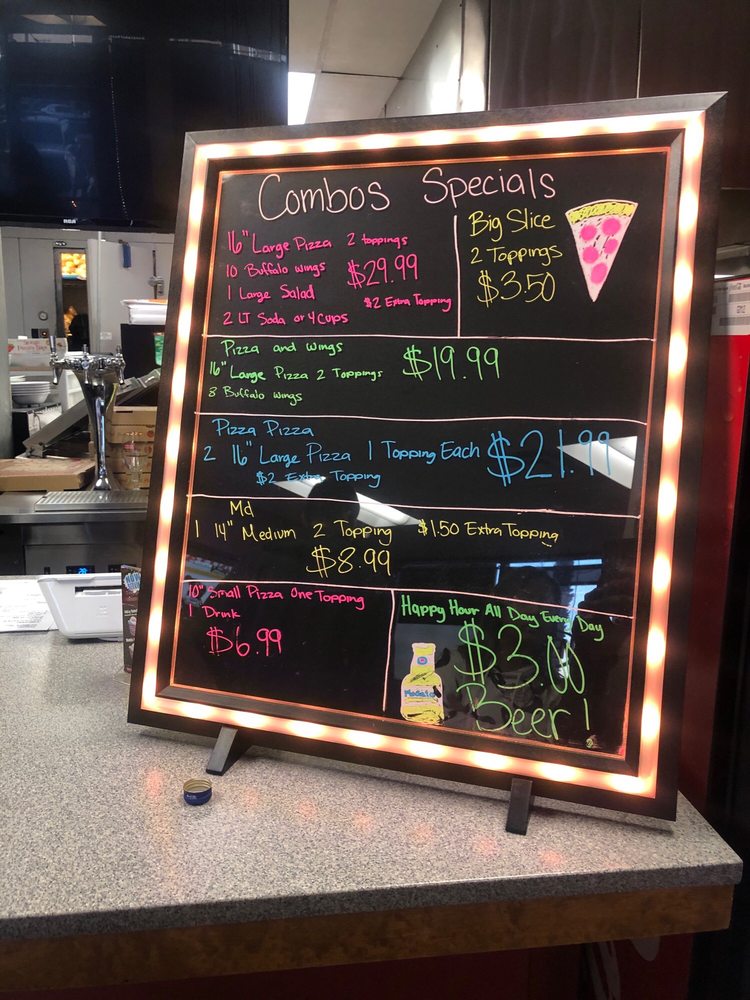 RCA
Combos Specials
16" Large Pizza 2 toppings
10 Buffalo wings $29.99
1 Large Salad
$2 Extra Topping
2 LT Soda or 4 Cups
Big Slice
2 Toppings
$3.50
Pizza and Wings
$19.99
16" Large Pizza 2 Toppings
8 Buffalo wings
Pizza Pizza
2 16" Large Pizza 1 Topping Each $21.99
$2 Extra Topping
Md
1 14" Medium 2 Topping $1.50 Extra Topping
$8.99
10" Small Pizza One Topping
1 Drink
$6.99
Happy Hour All Day Every Day
$3.00
Beer!